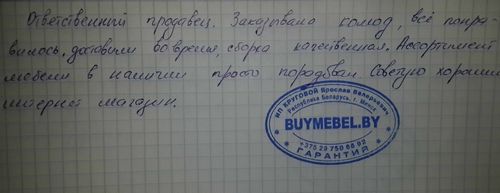 Ответственный продавец. Заказывала комод, всё понра-
вилось, доставили вовремя, сборка качественная. Ассортимент
мебели в наличии просто порадовал. Советую хороший
интернет магазин.
ИП КРУГОВОЙ Ярослав Валерьевич
Республика Беларусь, г. Минск
BUYMEBEL.BY
+375 29 750 68 92
ГАРАНТИЯ